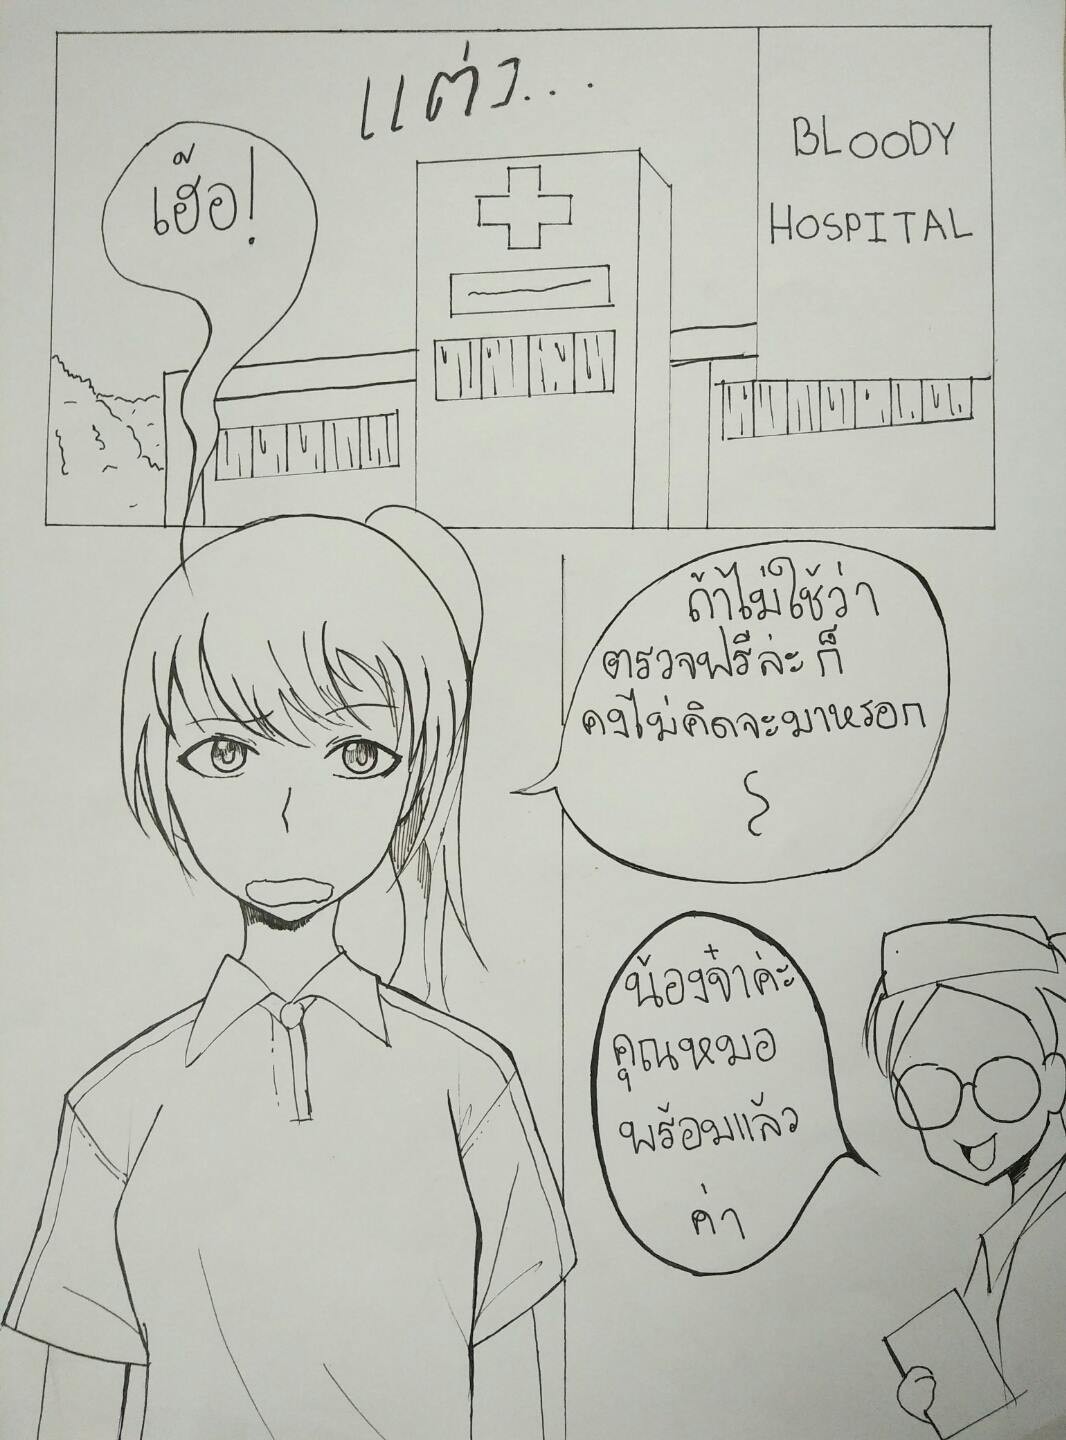 แต่ว...
BLOODY
HOSPITAL
เฮ๊อ!
ถ้าไม่ใช้ว่า
ตรวจฟรีล่ะก็
คงไม่คิดจะมาหรอก
น้องจ๋าค่ะ
คุณหมอ
พร้อมแล้ว
ค่า